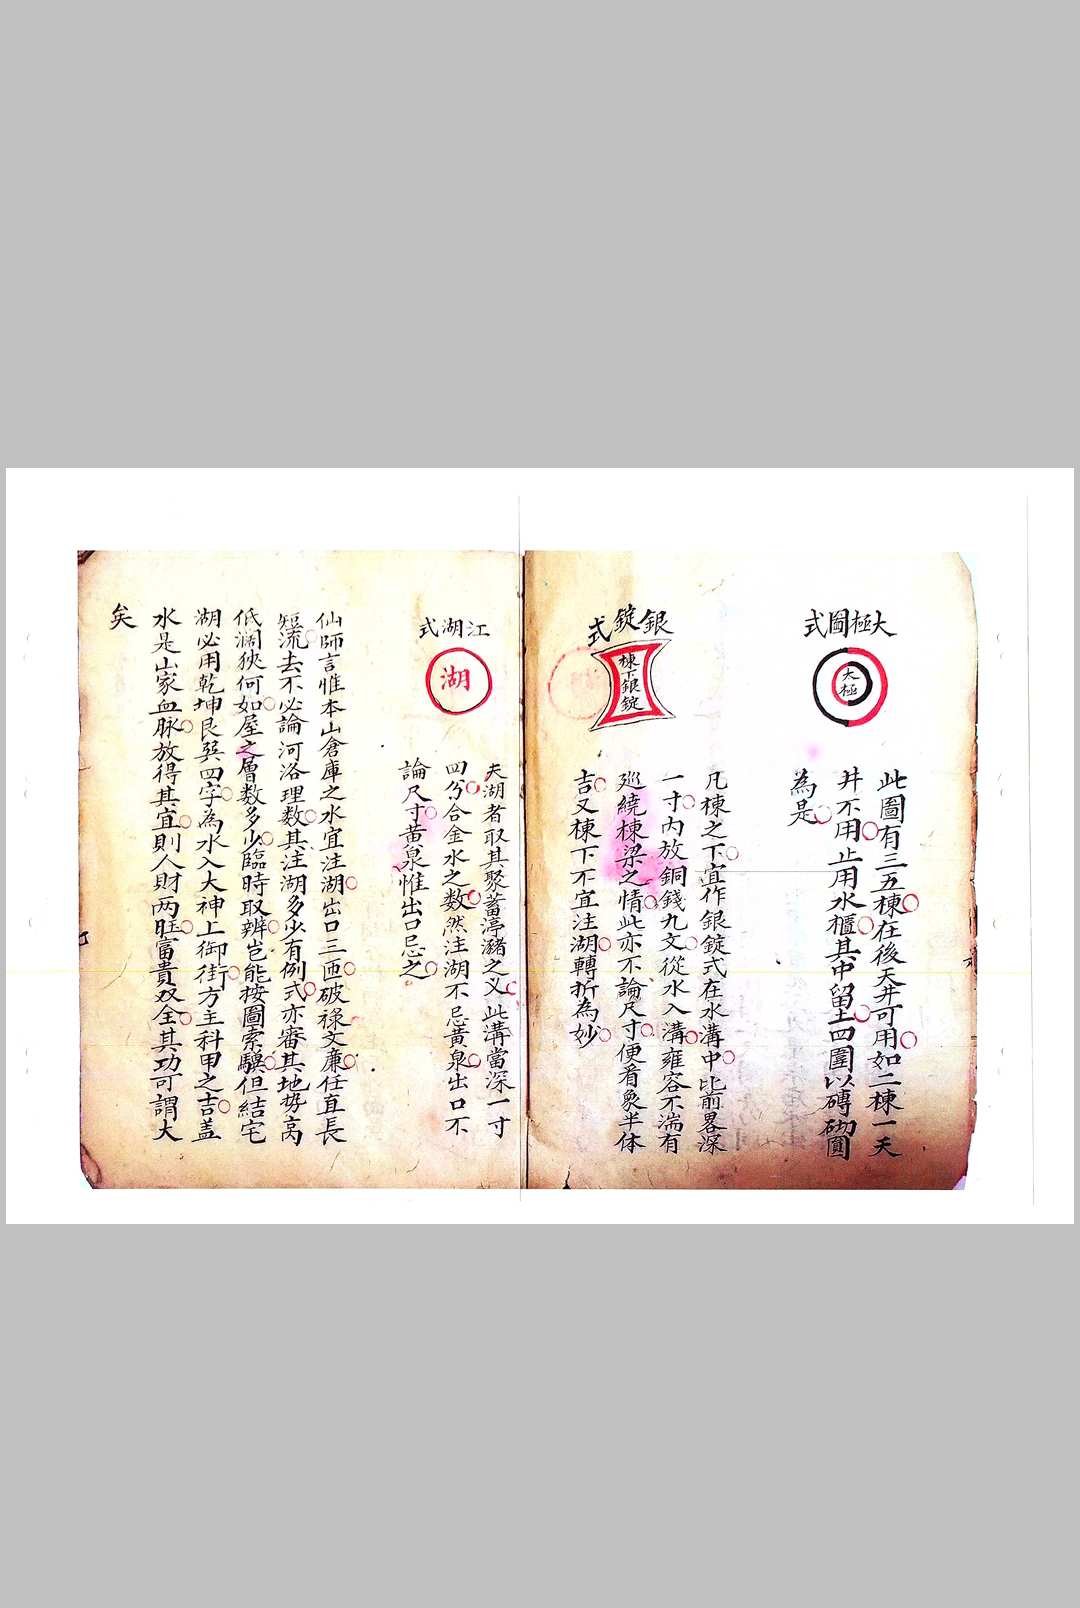 太極圖式
太極
此圖有三五棟在後天井可用如二棟一天
井不用止用水櫃其中留土四圍以磚砌圓
為是
銀錠式
棟下銀錠
凡棟之下宜作銀錠式在水溝中比前畧深
一寸內放銅錢九文從水入溝雍容不湍有
巡繞棟梁之情此亦不論尺寸便看象半体
吉又棟下不宜注湖轉折為妙
江湖式
湖
夫湖者取其聚蓄渟瀦之义此溝當深一寸
四兮合金水之数然注湖不忌黃泉出口不
論尺寸黃泉惟出口忌之
仙師言惟本山倉庫之水宜注湖出口三匝破祿文廉任直長
短流去不必論河洛理数其注湖多少有例式亦審其地势高
低濶狹何如屋之層数多少臨時取辨岂能按圖索驥但結宅
湖必用乾坤艮巽四字為水入大神上御街方主科甲之吉蓋
水是山家血脉放得其宜則人財两旺富貴双全其功可謂大
矣